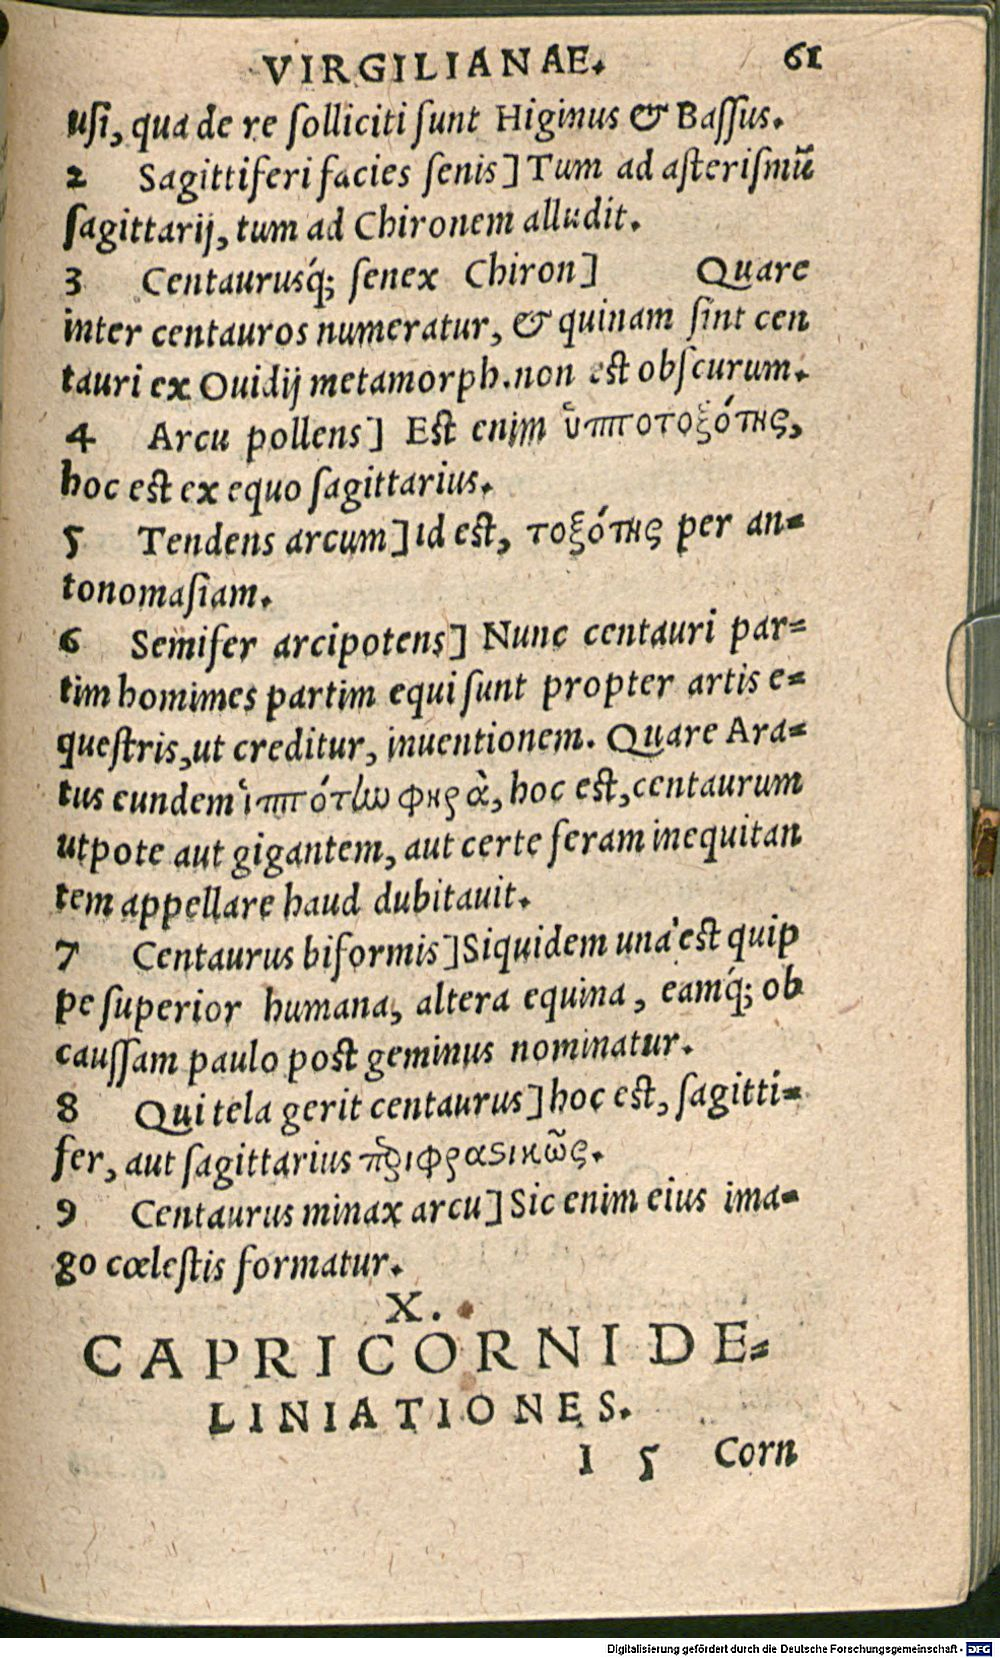 VIRGILIANAE. 61
usi, qua de re solliciti sunt Higinus & Bassus.
2 Sagittiferi facies senis] Tum ad asterismũ
sagittarij, tum ad Chironem alludit.
3 Centaurusq́; senex Chiron] Quare
inter centauros numeratur, & quinam sint cen
tauri ex Ouidij metamorph. non est obscurum.
4 Arcu pollens] Est enim ὑπποτοξότης,
hoc est ex equo sagittarius.
5 Tendens arcum] id est, τοξότης per an=
tonomasiam.
6 Semifer arcipotens] Nunc centauri par=
tim homimes partim equi sunt propter artis e=
questris, ut creditur, inuentionem. Quare Ara=
tus eundem ἱππότην φηρὰ, hoc est, centaurum
utpote aut gigantem, aut certe feram inequitan
tem appellare haud dubitauit.
7 Centaurus biformis] Siquidem una est quip
pe superior humana, altera equina, eamq́; ob
caussam paulo post geminus nominatur.
8 Qui tela gerit centaurus] hoc est, sagitti=
fer, aut sagittarius περιφραστικῶς.
9 Centaurus minax arcu] Sic enim eius ima=
go cœlestis formatur.
X.
CAPRICORNI DE=
LINIATIONES.
I 5 Corn
Digitalisierung gefördert durch die Deutsche Forschungsgemeinschaft - DFG